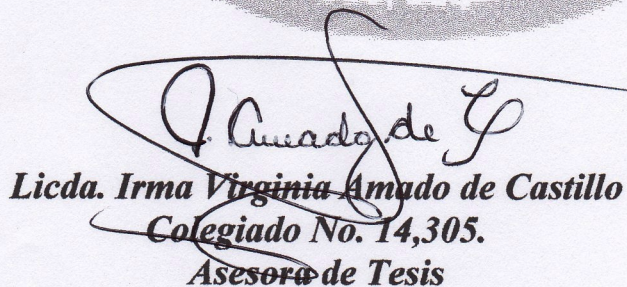 I. Amado de C
Licda. Irma Virginia Amado de Castillo
Colegiado No. 14,305.
Asesora de Tesis